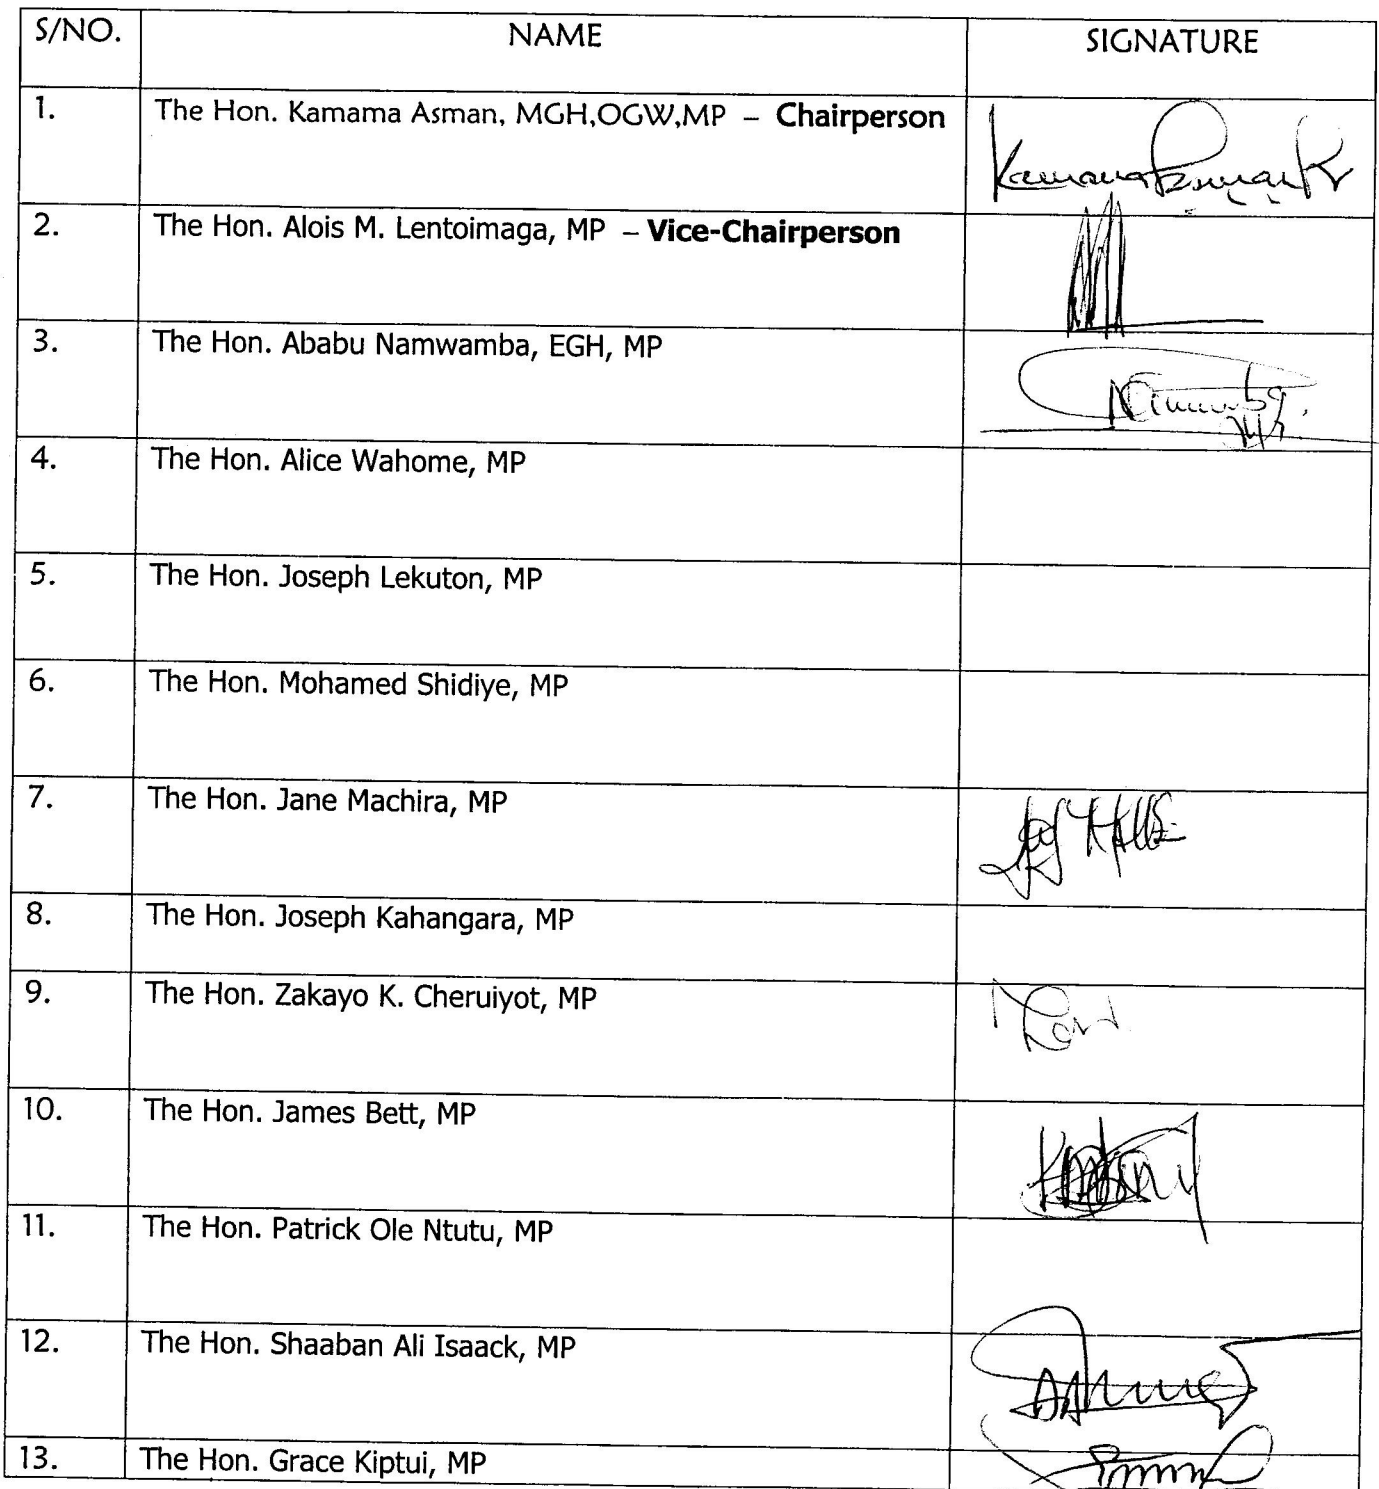 S/NO. NAME SIGNATURE
1. The Hon. Kamama Asman, MGH,OGW,MP – Chairperson
2. The Hon. Alois M. Lentoimaga, MP – Vice-Chairperson
3. The Hon. Ababu Namwamba, EGH, MP
4. The Hon. Alice Wahome, MP
5. The Hon. Joseph Lekuton, MP
6. The Hon. Mohamed Shidiye, MP
7. The Hon. Jane Machira, MP
8. The Hon. Joseph Kahangara, MP
9. The Hon. Zakayo K. Cheruiyot, MP
10. The Hon. James Bett, MP
11. The Hon. Patrick Ole Ntutu, MP
12. The Hon. Shaaban Ali Isaack, MP
13. The Hon. Grace Kiptui, MP